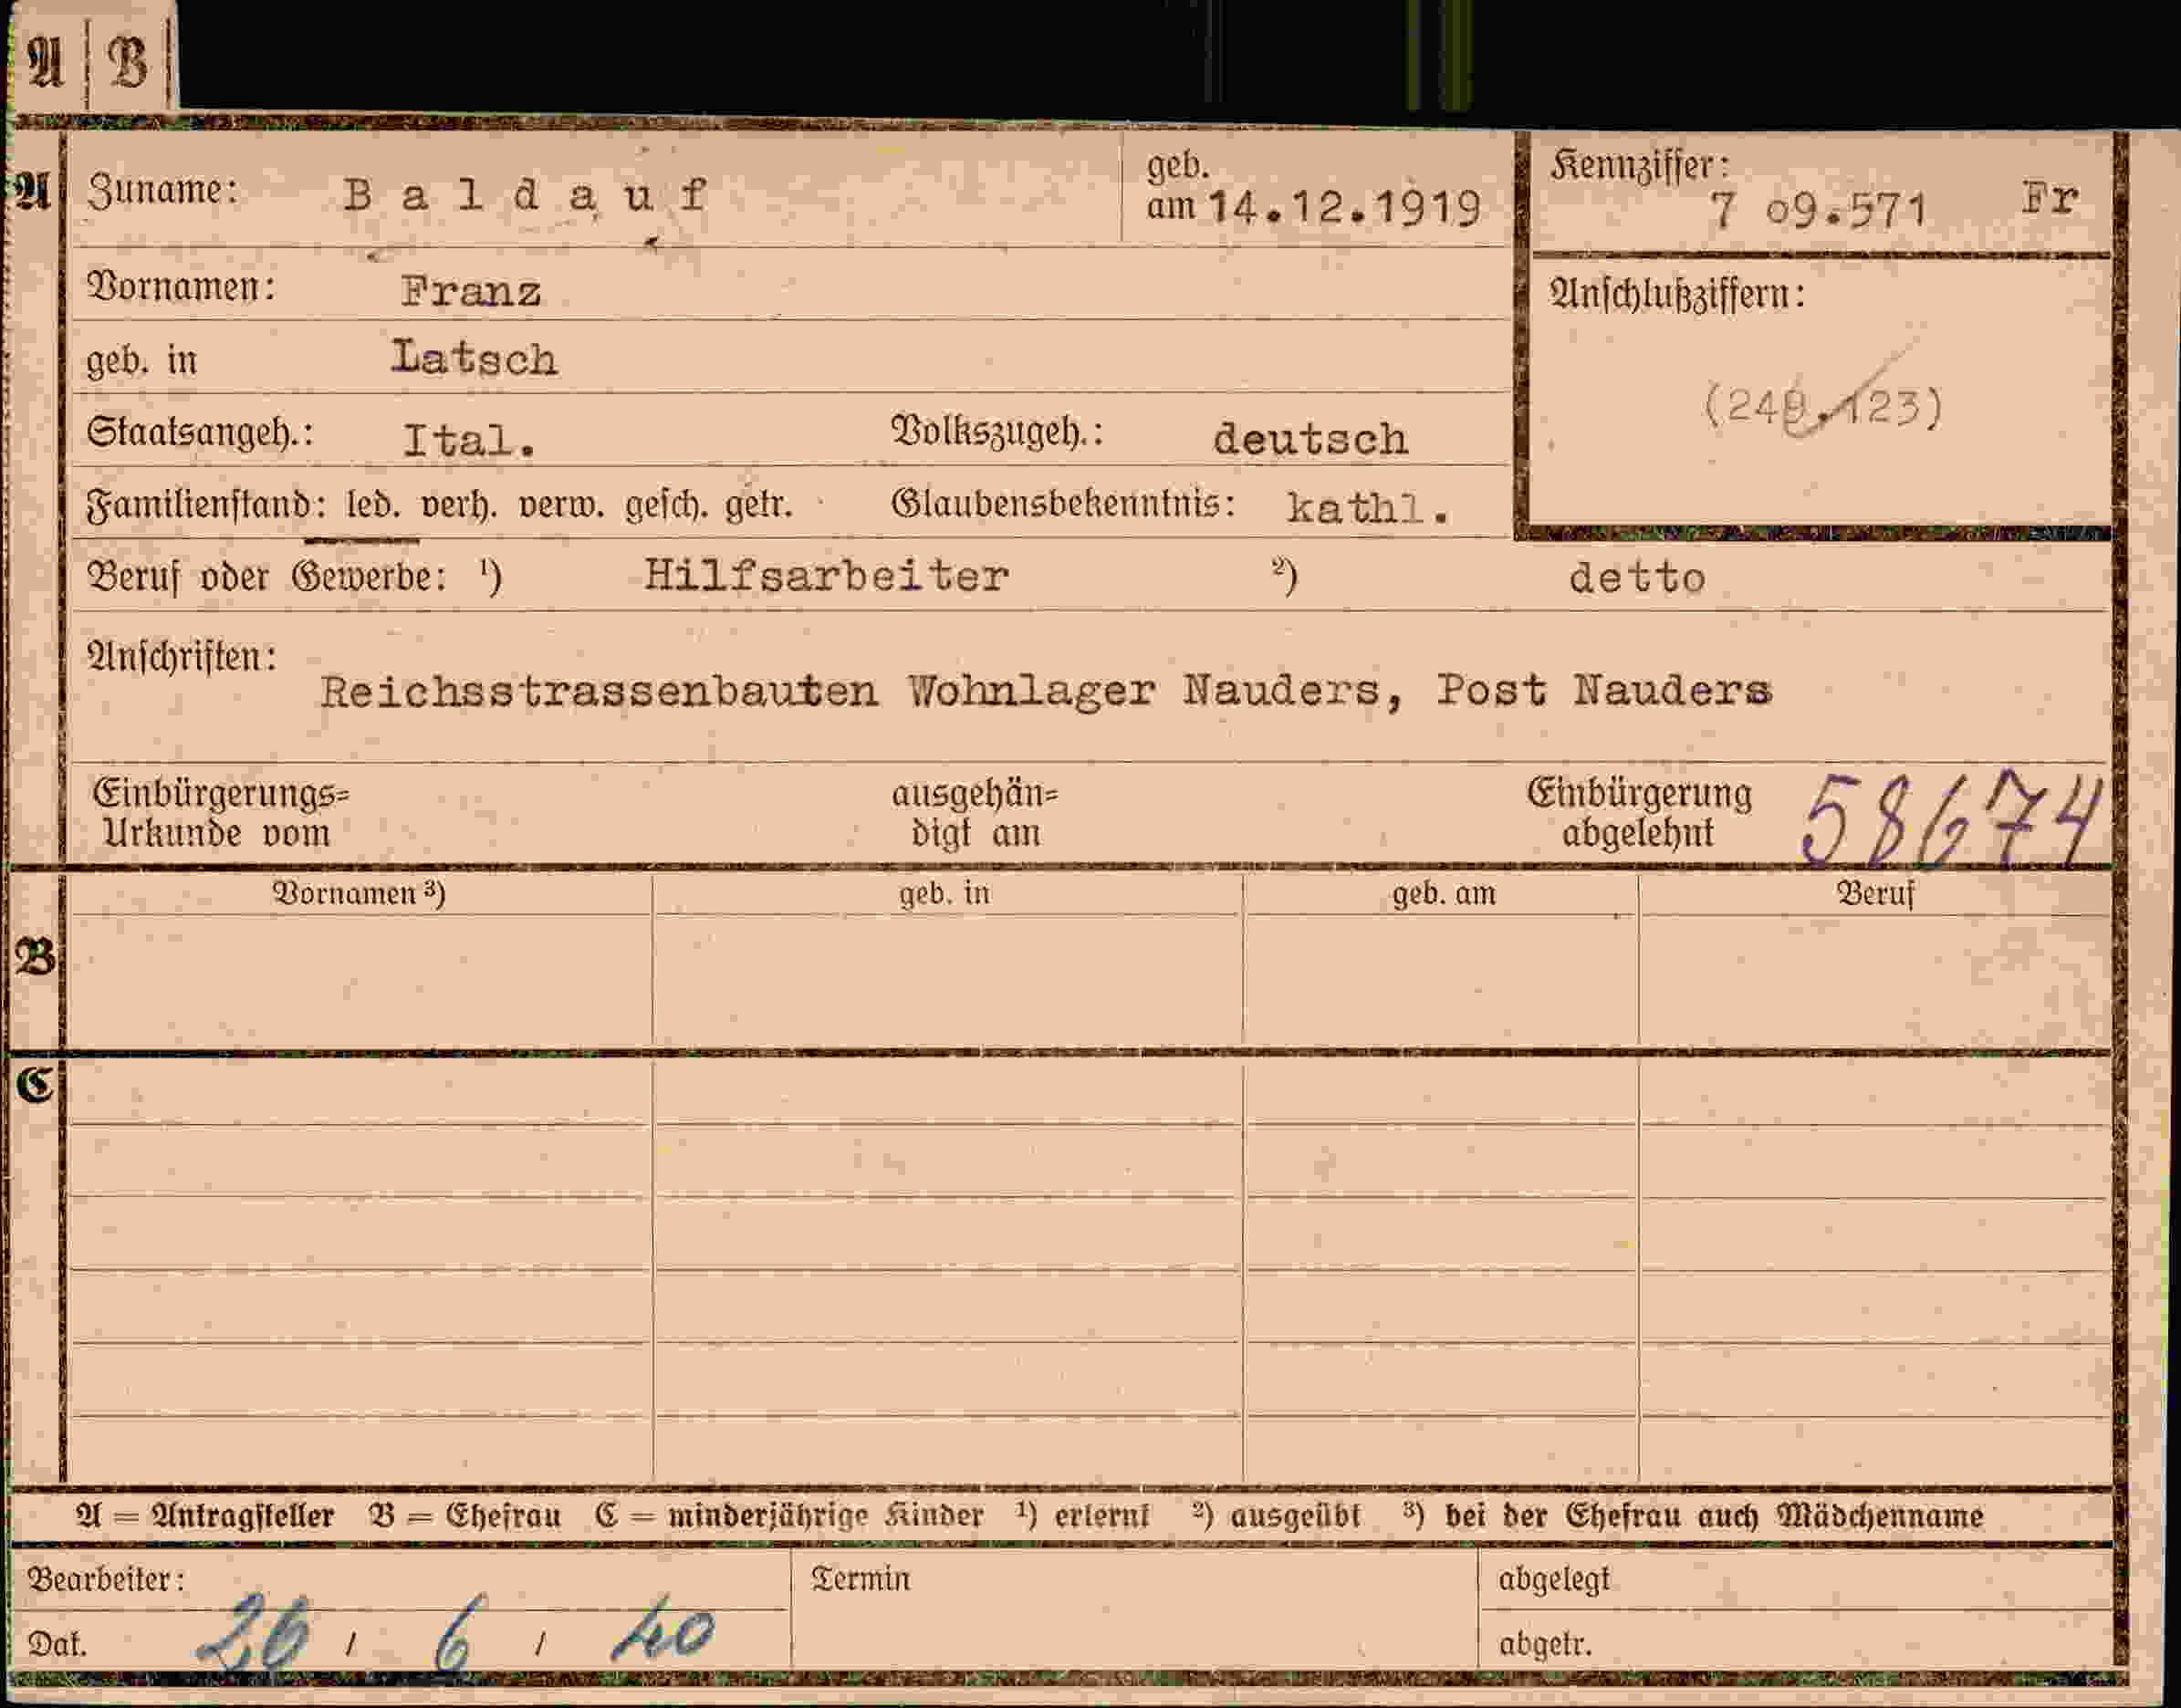 A B
A Zuname: Baldauf geb. am 14.12.1919 Kennziffer: 7 09.571 Fr
Vornamen: Franz Anschlußziffern:
geb. in Latsch
(249.123)
Staatsangeh.: Ital. Volkszugeh.: deutsch
Familienstand: led. verh. verw. gesch. getr. Glaubensbekenntnis: kathl.
Beruf oder Gewerbe: ¹) Hilfsarbeiter ²) detto
Anschriften:
Reichsstrassenbauten Wohnlager Nauders, Post Nauders
Einbürgerungs= ausgehän= Einbürgerung 58674
Urkunde vom digt am abgelehnt
Vornamen ³) geb. in geb. am Beruf
B
C
A = Antragsteller B = Ehefrau C = minderjährige Kinder ¹) erlernt ²) ausgeübt ³) bei der Ehefrau auch Mädchenname
Bearbeiter: Termin abgelegt
Dat. 26 / 6 / 40 abgetr.